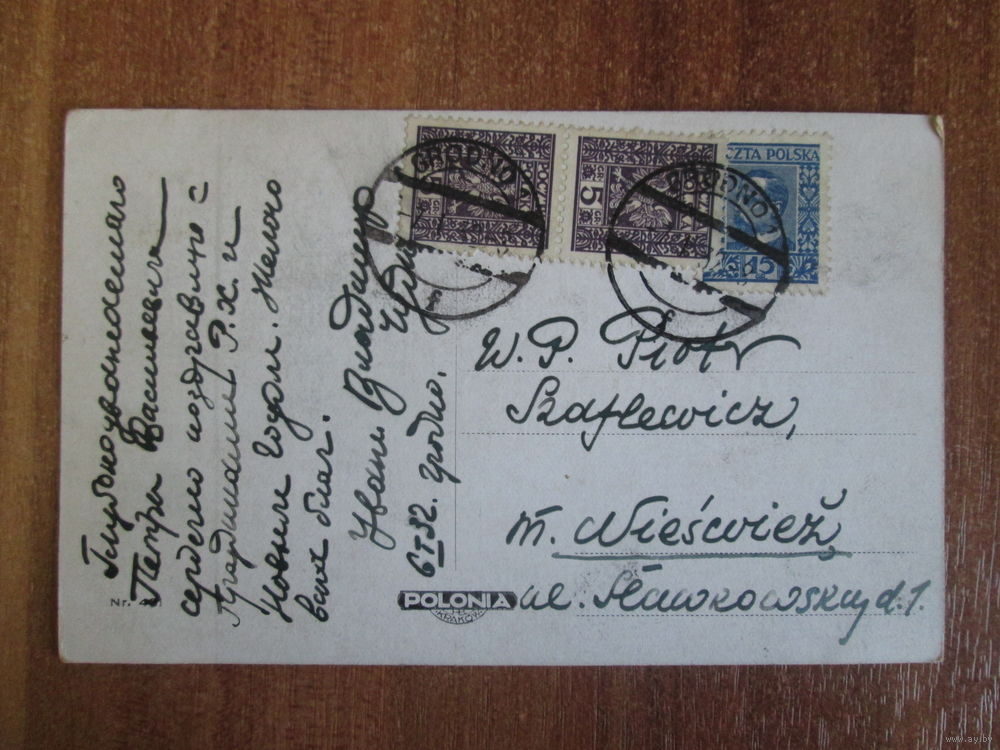 Глубокоуважаемого
Петра Васильевича
сердечно поздравляю с
Праздником Р. Х. и
Новым Годом. Желаю
всех благ.
Иван Владимир
6 I 32. Гродно.
Nr.
POLONIA
KRAKÓW
GRODNO 1
GRODNO 1
5 GR
POCZTA POLSKA
CZTA POLSKA
15
W. P. Piotr
Szaflewicz,
m. Nieśwież,
ul. Sławkowskiego d. 1.
www.ay.by